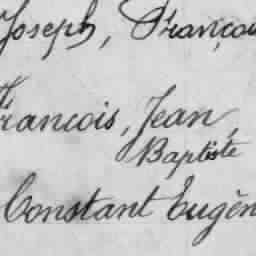 Joseph, François
François, Jean,
Baptiste
Constant Eugèn